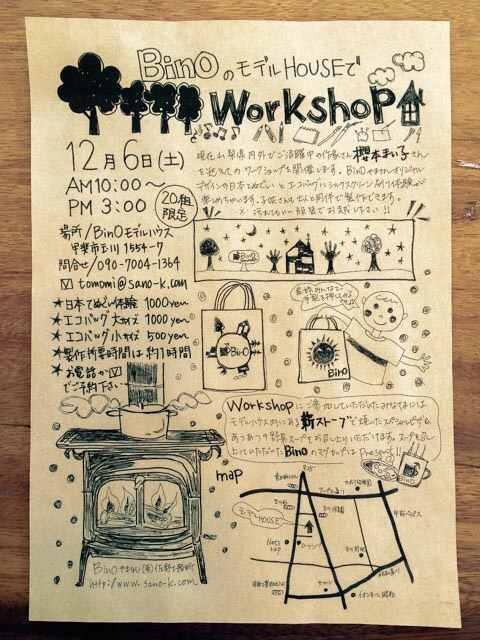 BinOのモデルHOUSEで
Workshop
12月6日(土)
AM10:00～
PM 3:00
20組
限定
現在山梨県内外でご活躍中の作家さん櫻本まい子さん
をむかえてのワークショップを開催します。BinOやまなしオリジナル
デザインの日本てぬぐいとエコバッグにシルクスクリーン刷り体験が
楽しめちゃいます。
服装でお越し下さい!!
場所/BinOモデルハウス
甲斐市玉川1554-7
問合せ/090-7004-1364
tomomi@sano-k.com
★日本てぬぐい体験 1000yen
★エコバッグ大サイズ 1000yen
★エコバッグ小サイズ 500yen
★製作所要時間は約1時間
★お電話か
でご予約下さい
BinO
BinO
BinO
Workshopにご参加していただいたみなさまには
モデルハウス内にある薪ストーブで焼いたスペシャルピザ&
あつあつ野菜スープをお召し上がりいただけます。スープを召し
上っていただいたBinOのマグカップはPresent!!
map
モデルHOUSE
BinOやまなし(有)佐野工務所
http://www.sano-k.com
イオンモール昭和